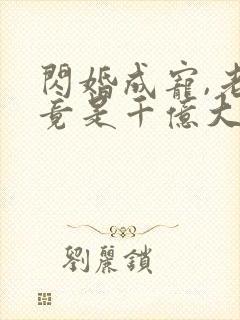 閃婚成寵,老
竟是千億大
劉麗鎖